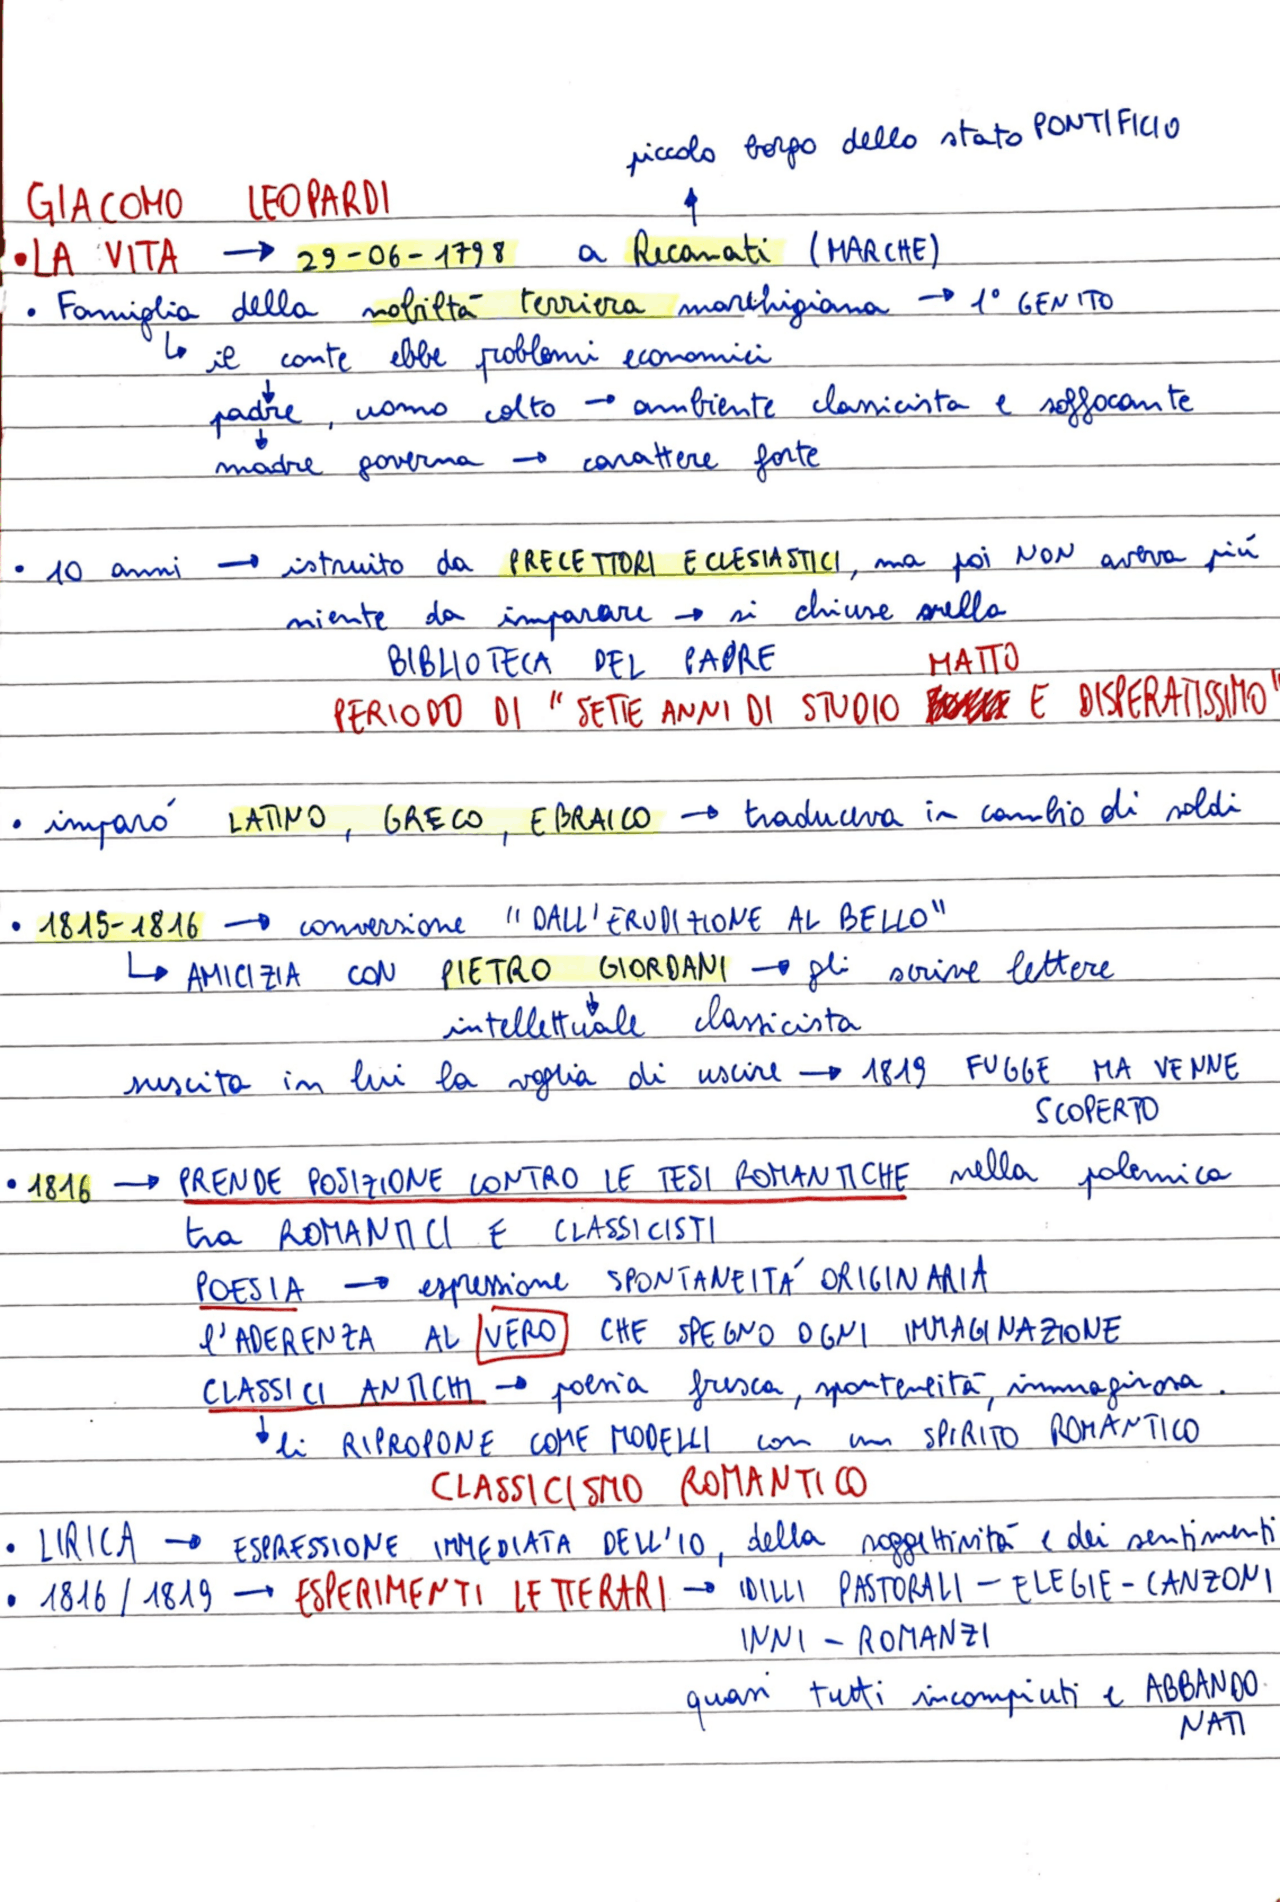 piccolo borgo dello stato PONTIFICIO
↑
GIACOMO LEOPARDI
• LA VITA → 29-06-1798 a Recanati (MARCHE)
• Famiglia della nobiltà terriera marchigiana → 1° GENITO
↳ il conte ebbe problemi economici
↓
padre, uomo colto → ambiente classicista e soffocante
↓
madre governa → carattere forte
• 10 anni → istruito da PRECETTORI ECLESIASTICI, ma poi NON aveva più
niente da imparare → si chiuse nella
BIBLIOTECA DEL PADRE
MATTO
PERIODO DI "SETTE ANNI DI STUDIO E DISPERATISSIMO"
• imparó LATINO, GRECO, EBRAICO → traduceva in cambio di soldi
• 1815-1816 → conversione "DALL'ERUDIZIONE AL BELLO"
↳ AMICIZIA CON PIETRO GIORDANI → gli scrive lettere
↓
intellettuale classicista
suscita in lui la voglia di uscire → 1819 FUGGE MA VENNE
SCOPERTO
• 1816 → PRENDE POSIZIONE CONTRO LE TESI ROMANTICHE nella polemica
tra ROMANTICI E CLASSICISTI
POESIA → espressione SPONTANEITÀ ORIGINARIA
l'ADERENZA AL VERO CHE SPEGNO OGNI IMMAGINAZIONE
CLASSICI ANTICHI → poesia fresca, sponteneità, immaginosa.
↓ li RIPROPONE COME MODELLI con un SPIRITO ROMANTICO
CLASSICISMO ROMANTICO
• LIRICA → ESPRESSIONE IMMEDIATA DELL'IO, della soggettività e dei sentimenti
• 1816/1819 → ESPERIMENTI LETTERARI → IDILLI PASTORALI - ELEGIE - CANZONI
INNI - ROMANZI
quasi tutti incompiuti e ABBANDO-
NATI